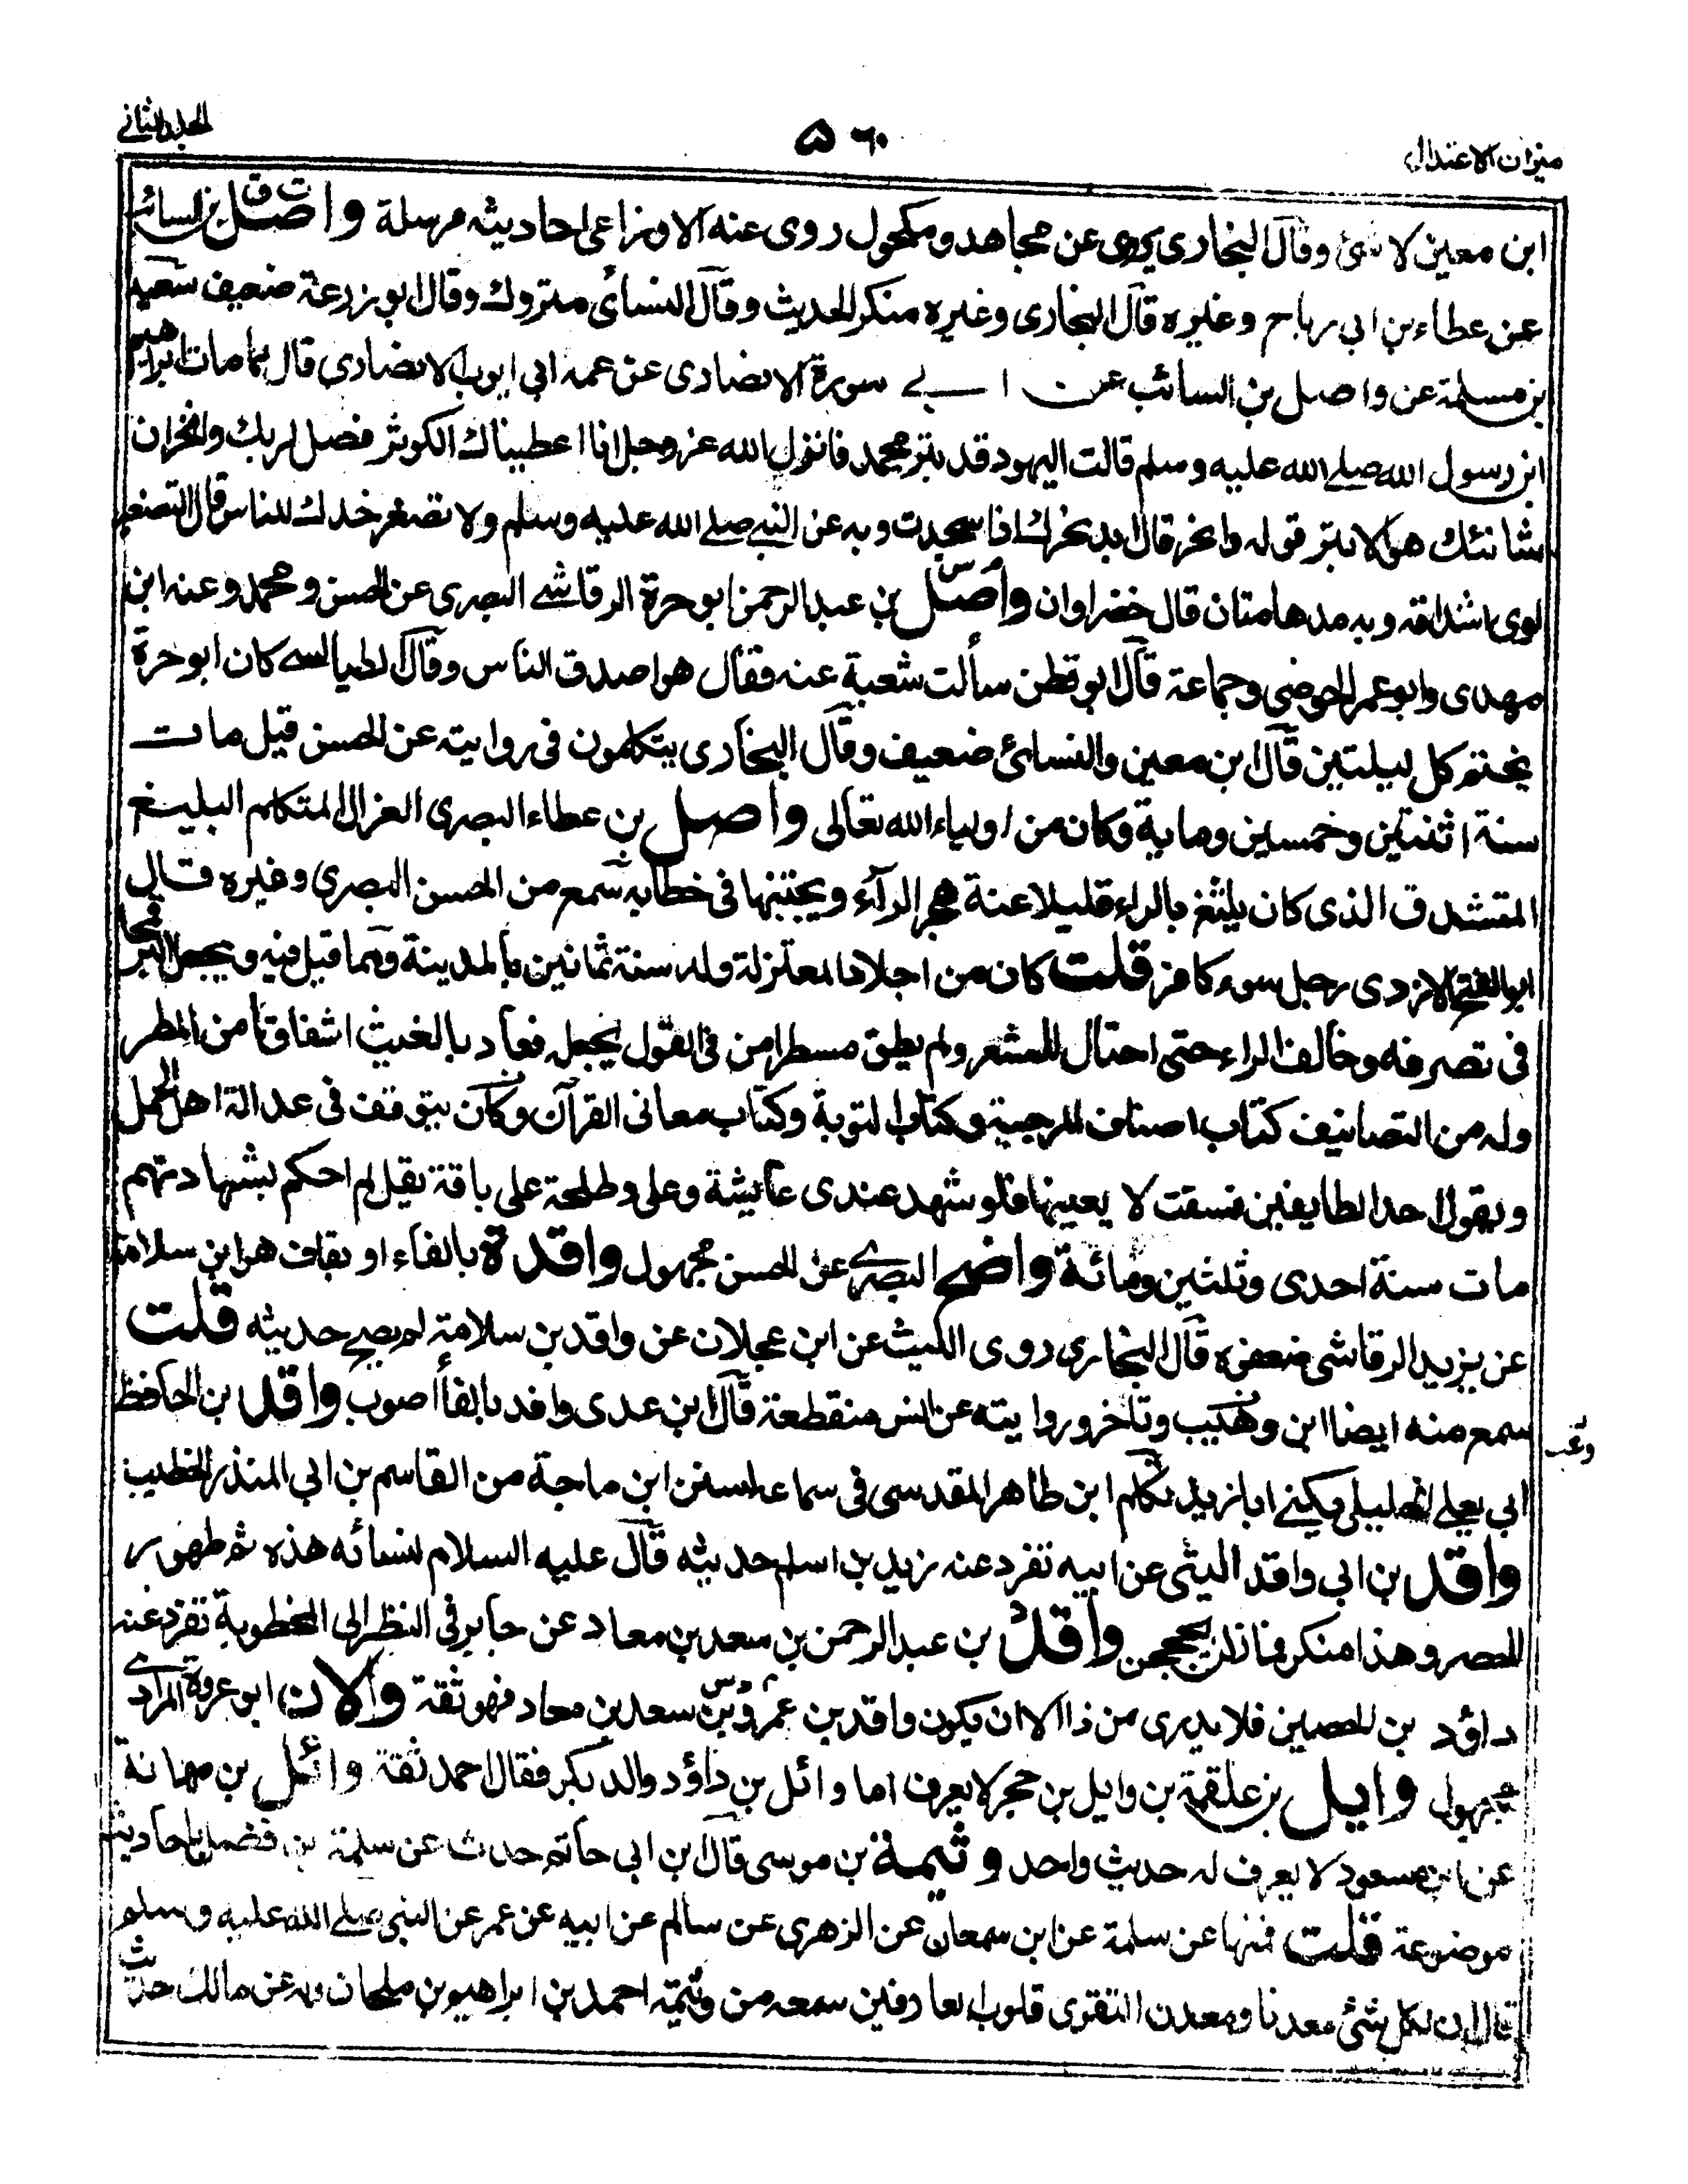 ميزان الاعتدال
۵۶۰
المجلد الثاني
ابن معين لا شئ وقال البخاري يروى عن مجاهد ومكحول روى عنه الاوزاعي احاديثه مرسلة واصل بن السائب
عن عطاء بن ابي رباح وغيره قال البخاري وغيره منكر الحديث وقال النسائي متروك وقال ابو زرعة ضعيف سعيد
بن مسلمة عن واصل بن السائب عن ابي سورة الانصاري عن عمه ابي ايوب الانصاري قال لما مات ابراهيم
ابن رسول الله صلے الله عليه وسلم قالت اليهود قد بتر محمد فانزل الله عز وجل انا اعطيناك الكوثر فصل لربك وانحر ان
شانئك هو الابتر قوله وانحر قال ابد نحرك اذا سجدت وبه عن النبي صلے الله عليه وسلم ولا تصعر خدك للناس قال التصعير
لوى اشداقه وبه مدهامتان قال خضراوان واصل بن عبد الرحمن ابو حرة الرقاشے البصري عن الحسن ومحمد وعنه ابن
مهدى وابو عمر الحوضي وجماعة قال ابو قطن سألت شعبة عنه فقال هو اصدق الناس وقال الطيالسے كان ابو حرة
يختم كل ليلتين قال ابن معين والنسائي ضعيف وقال البخاري يتكلمون فى روايته عن الحسن قيل مات
سنة اثنتين وخمسين وماية وكان من اولياء الله تعالى واصل بن عطاء البصري الغزال المتكلم البليغ
المتشدق الذى كان يلثغ بالراء فلبلاغته هجر الرآء ويجتنبها فى خطابه سمع من الحسن البصري وغيره قال
ابو الفتح الازدى رجل سوء كافر قلت كان من اجلاد المعتزلة ولد سنة ثمانين بالمدينة ومما قيل فيه ويجعل البر قمحا
فى تصرفه وخالف الراء حتى احتال للشعر ولم يطق مسطرا من فى القول يجعله فعاد بالغيث اشفاقا من المطر
وله من التصانيف كتاب اصناف المرجية وكتاب التوبة وكتاب معانى القرآن وكان يتوقف فى عدالة اهل الجمل
ويقول احد الطايفين فسقت لا بعينها فلو شهد عندى عايشة وعلى وطلحة على باقة بقل لم احكم بشهادتهم
مات سنة احدى وثلثين ومائة واضح البصرے عن الحسن مجهول واقدة بالفاء او بقاف هو ابن سلامة
عن يزيد الرقاشى ضعفوه قال البخاري روى الليث عن ابن عجلان عن واقد بن سلامة لم يصح حديثه قلت
سمع منه ايضا ابن وهيب وتأخر وروايته عن انس منقطعة قال ابن عدى وافد بالفا أصوب واقد بن الحافظ
وهب
ابي يعلے الخليلي يكنے ابا زيد تكلم ابن طاهر المقدسي فى سماعه لسنن ابن ماجة من القاسم بن ابي المنذر الخطيب
واقد بن ابي واقد الليثى عن ابيه تفرد عنه زيد بن اسلم حديثه قال عليه السلام لنسائه هذه ثم ظهور
الحصر وهذا منكر فما زلن يحججن واقد بن عبد الرحمن بن سعد بن معاد عن جابر فى النظر الى المخطوبة تفرد عنه
داؤد بن الحصين فلا يدرى من ذا الا ان يكون واقد بن عمرو بن سعد بن معاد فهو ثقة والان ابو عروة المرادے
مجهول وايل بن علقمة بن وايل بن حجر لا يعرف اما وائل بن داؤد والد بكر فقال احمد ثقة وائل بن مهانة
عن ابن مسعود لا يعرف له حديث واحد وثيمة بن موسى قال ابن ابي حاتم حدث عن سلمة بن فضيل باحاديث
موضوعة قلت فمنها عن سلمة عن ابن سمعان عن الزهرى عن سالم عن ابيه عن عمر عن النبى صلے الله عليه وسلم
قال ان لكل شئ معدنا ومعدن التقوى قلوب العارفين سمعه من وثيمة احمد بن ابراهيم بن ملحان وله عن مالك حديث